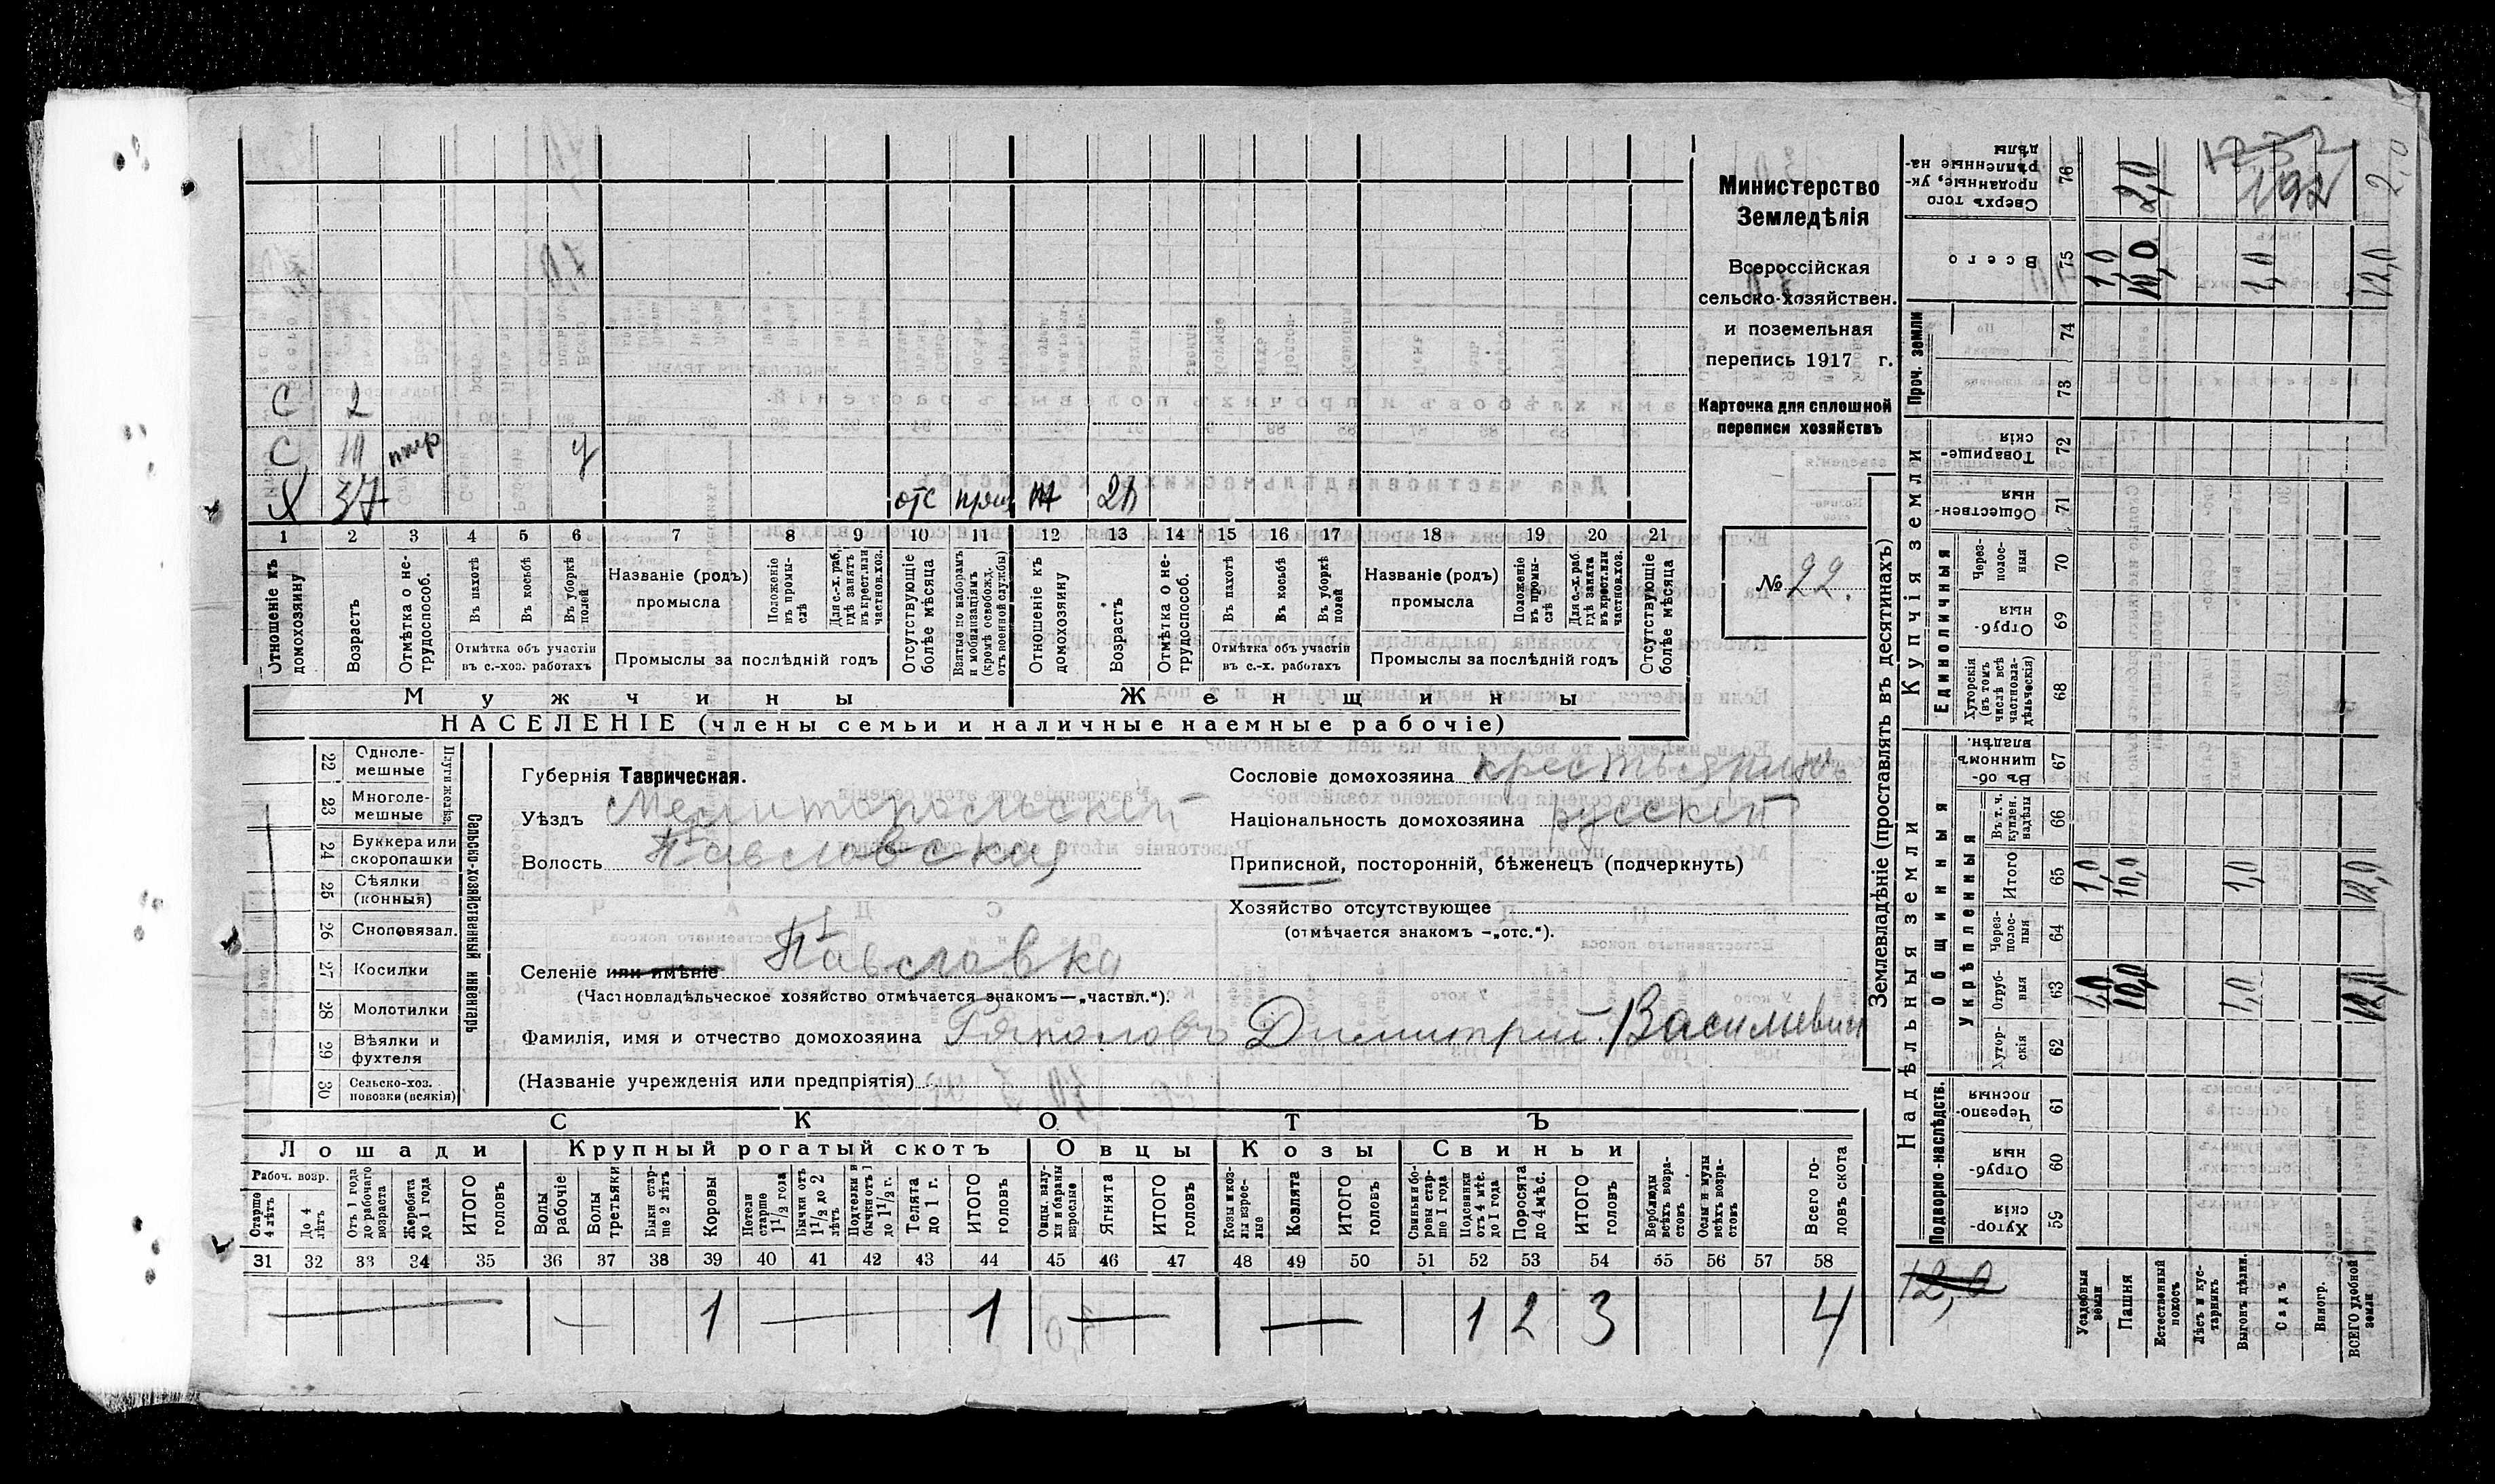 С 2
С
Х 37 отс
1 2 3 4 5 6 7 8 9 10 11 12 13 14 15 16 17 18 19 20 21
Отношеніе къ домохозяину
Возрастъ
Отмѣтка о нетрудоспособ.
Въ пахотѣ
Въ косьбѣ
Въ уборкѣ полей
Отмѣтка объ участіи
въ с.-хоз. работахъ
Названіе (родъ)
промысла
Положеніе въ промыслѣ
Для с.-х. раб. гдѣ занятъ въ крест. или частнов. хоз.
Промыслы за послѣдній годъ
Отсутствующіе болѣе мѣсяца
Взятые по наборамъ и мобилизаціямъ (кромѣ освобожд. отъ военной службы)
Отношеніе къ домохозяину
Возрастъ
Отмѣтка о нетрудоспособ.
Въ пахотѣ
Въ косьбѣ
Въ уборкѣ полей
Отмѣтка объ участіи
въ с.-х. работахъ
Названіе (родъ)
промысла
Положеніе въ промыслѣ
Для с.-х. раб. гдѣ занята въ крест. или частнов. хоз.
Промыслы за послѣдній годъ
Отсутствующіе болѣе мѣсяца
Мужчины
Женщины
НАСЕЛЕНІЕ (члены семьи и наличные наемные рабочіе)
Министерство
Земледѣлія
Всероссійская
сельско-хозяйствен.
и поземельная
перепись 1917 г.
Карточка для сплошной
переписи хозяйствъ
№ 22.
Сельско-хозяйственный инвентарь
Плуги желѣз.
22 Однолемешные
23 Многолемешные
24 Буккера или скоропашки
25 Сѣялки (конныя)
26 Сноповязал.
27 Косилки
28 Молотилки
29 Вѣялки и фухтеля
30 Сельско-хоз. повозки (всякія)
Губернія Таврическая.
Уѣздъ Мелитопольскій
Волость Павловская
Селеніе или имѣніе Павловка
(Частновладѣльческое хозяйство отмѣчается знакомъ—„частвл.“).
Фамилія, имя и отчество домохозяина Димитрий Василиевич
(Названіе учрежденія или предпріятія)
Сословіе домохозяина крестьянинъ
Національность домохозяина русскій
Приписной, посторонній, бѣженецъ (подчеркнуть)
Хозяйство отсутствующее
(отмѣчается знакомъ —„отс.“).
СКОТЪ
Лошади
Крупный рогатый скотъ
Овцы
Козы
Свиньи
Рабоч. возр.
Старше 4 лѣтъ
До 4 лѣтъ
Отъ 1 года до рабочаго возраста
Жеребята до 1 года
ИТОГО головъ
Волы рабочіе
Волы третьяки
Быки старше 2 лѣтъ
Коровы
Нетели старше 1 1/2 года
Бычки отъ 1 1/2 до 2 лѣтъ
Подтелки и бычки отъ 1 до 1 1/2 г.
Телята до 1 г.
ИТОГО головъ
Овцы, валухи и бараны взрослые
Ягнята
ИТОГО головъ
Козы и козлы взрослые
Козлята
ИТОГО головъ
Свиньи боровы старше 1 года
Подсвинки отъ 4 мѣс. до 1 года
Поросята до 4 мѣс.
ИТОГО головъ
Верблюды всѣхъ возрастовъ
Ослы и мулы всѣхъ возрастовъ
Всего головъ скота
31 32 33 34 35 36 37 38 39 40 41 42 43 44 45 46 47 48 49 50 51 52 53 54 55 56 57 58
1 1 1 2 3 4
Землевладѣніе (проставлять въ десятинахъ)
Надѣльныя земли
Купчія земли
Проч. земли
Подворно-наслѣдств.
Общинныя
Укрѣпленныя
Единоличныя
Хуторскія 59
Отрубныя 60
Черезполосныя 61
Хуторскія 62
Отрубныя 63
Черезполосныя 64
ИТОГО 65
Въ т. ч. куплен. надѣлы 66
Въ общинномъ владѣн. 67
Хуторскія (въ томъ числѣ всѣ частновладѣльческія) 68
Отрубныя 69
Черезполосныя 70
Общественныя 71
Товарищескія 72
73
74
Всего 75
Сверхъ того проданные, укрѣпленные надѣлы 76
Усадебныя земли
Пашня
Естественный покосъ
Лѣсъ и кустарникъ
Выгонъ цѣлин.
Садъ
Виногр.
ВСЕГО удобной земли
1,0 10,0 1,0 12,0
1,0 10,0 1,0 12,0
1,0 10,0 1,0 12,0
2,0 192 2,0
12,0